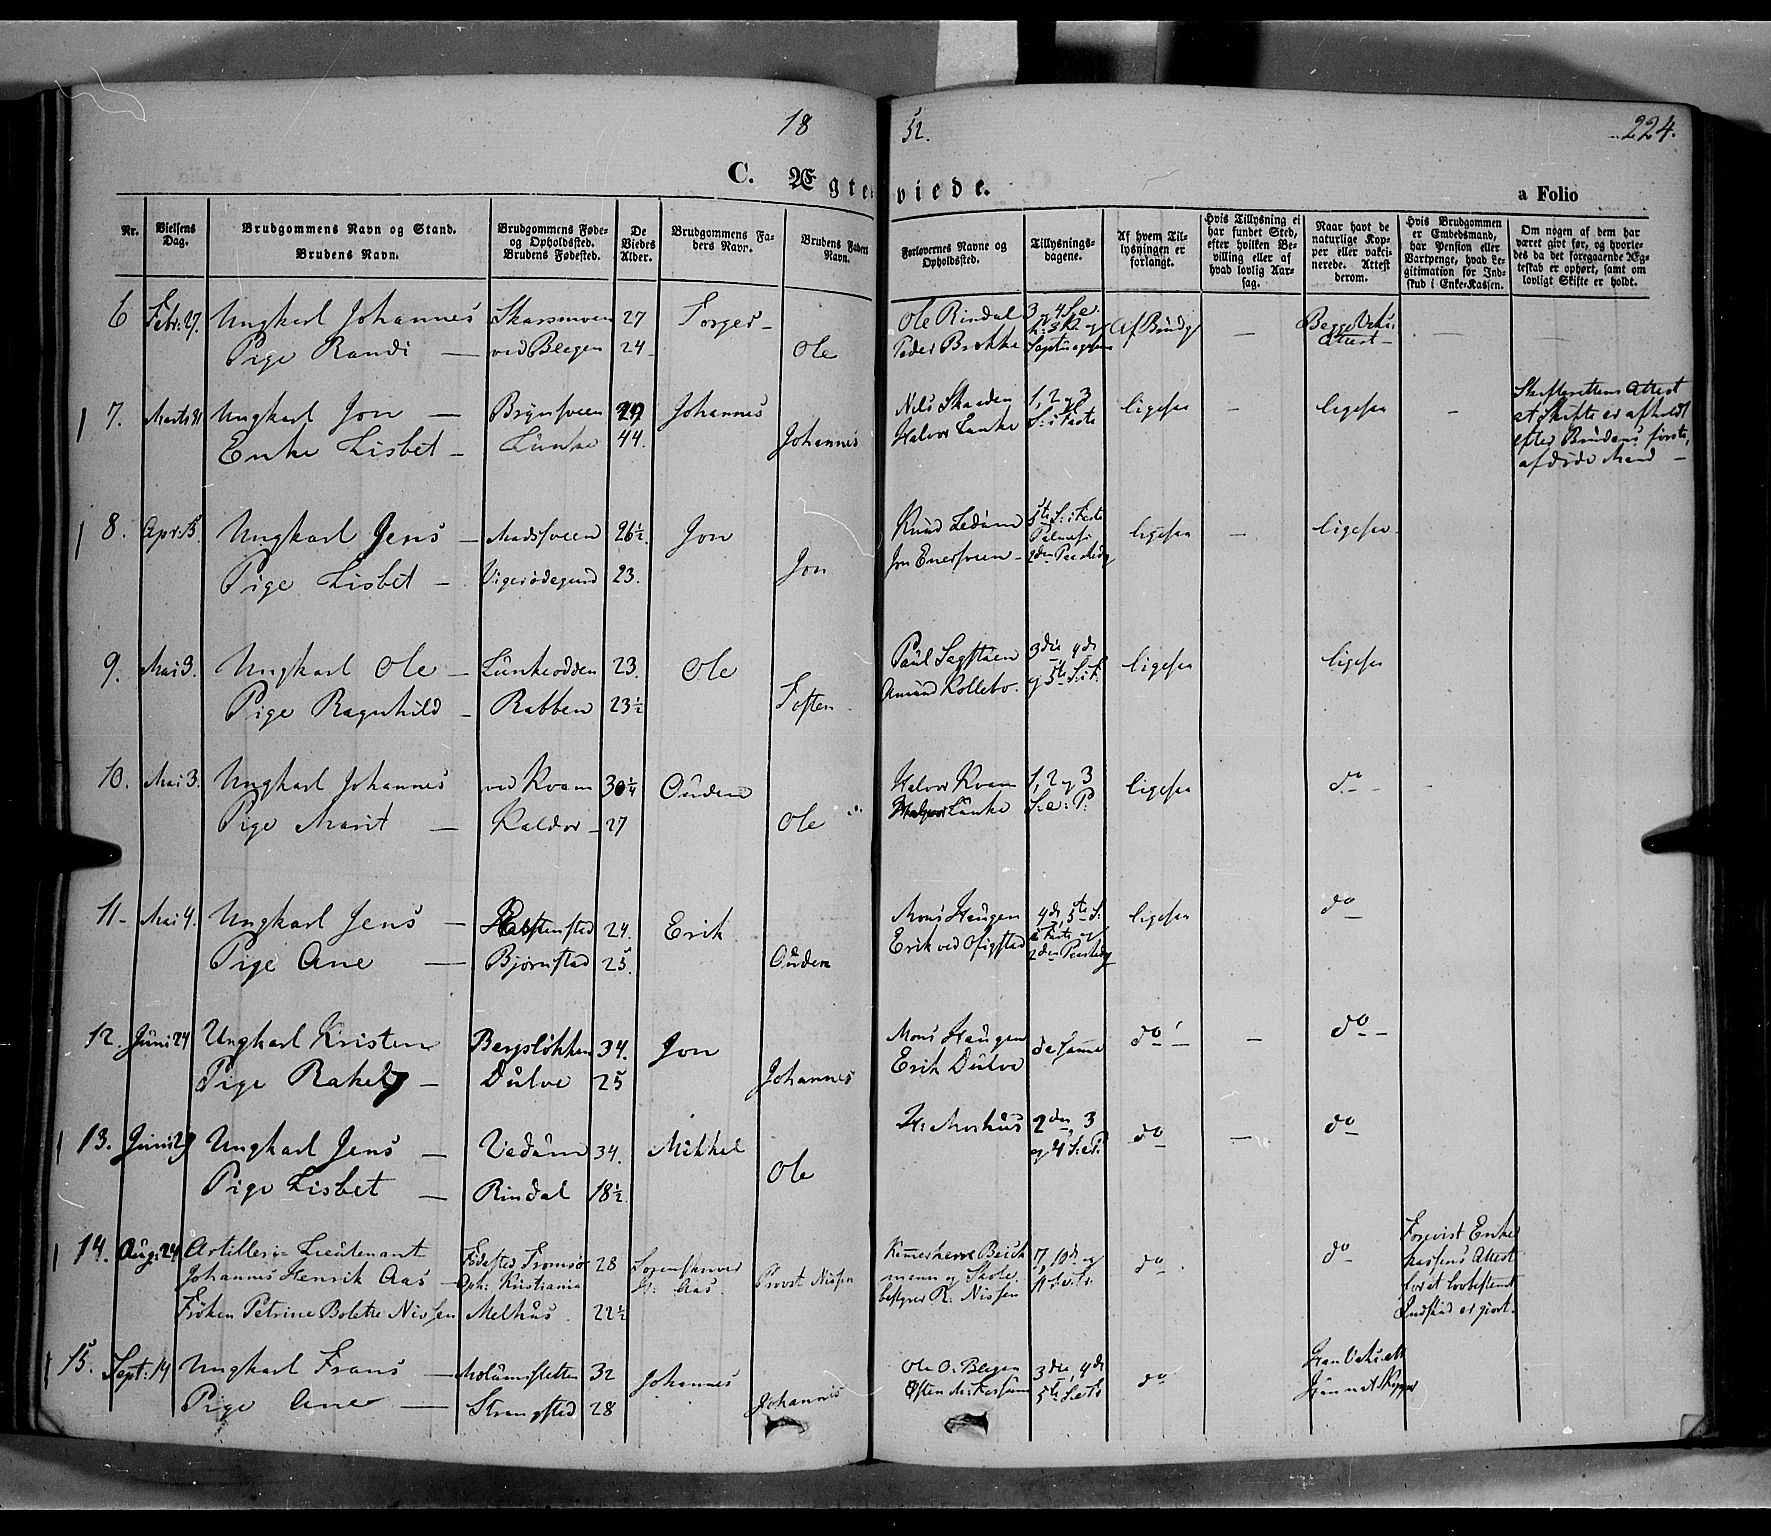 18 52. 224.
C. Ægteviede. a Folio
Nr. Vielsens Dag. Brudgommens Navn og Stand. Brudens Navn. Brudgommens Føde- og Opholdssted. Brudens Fødested. De Viedes Alder. Brudgommens Faders Navn. Brudens Faders Navn. Forlovernes Navne og Opholdssted. Tillysningsdagene. Af hvem Tillysningen er forlangt. Hvis Tillysning ei har fundet Sted, efter hvilken Bevilling eller af hvad lovlig Aarsag. Naar havt de naturlige Kopper eller vaccinerede. Attest derom. Hvis Brudgommen er Embedsmand, har Pension eller Vartpenge, hvad Legitimation for Indskud i Enke-Kassen. Om nogen af dem har været gift før, og hvorledes da det foregaaende Ægteskab er ophørt, samt om lovligt Skifte er holdt.
6 Febr: 27. Ungkarl Johannes Skarsmoen 27 Torger Ole Rindal 3 og 4 S.e. Af Brudg —
Pige Randi — ved Blegen 24 Ole Peder Brække Attest —
7. Marts 31 Ungkarl Jon — Brynsveen 29 Johannes Nils Skaaden 1, 2 og 3 ligesaa — ligesaa — Skifterettens Attest
Enke Lisbet — Lunke 44. Johannes Halvor Lunke S: i Faste at Skifte er afholdt
efter Brudens første,
afdøde Mand —
8. Apr: 15. Ungkarl Jens — Madssveen 26½. Jon Knud Ledum 5te S: i Faste ligesaa — ligesaa
Pige Lisbet — Vigerødegaard 23. Jon Jon Enersveen — 2den Paaskedg
9. Mai 3. Ungkarl Ole — Lunkeodden 23. Ole Paul Sagstuen 3die 4de ligesaa ligesaa
Pige Ragnhild — Rabben 23½ Tosten Amund Kollebo. og 5te S: i F.
10. Mai 3. Ungkarl Johannes ved Kvam 30¼ Ouden Halvor Kvam 1, 2 og 3 ligesaa do —
Pige Marit — Kaldor — 27 Ole Halvor Lunke S: e: P:
11 — Mai 4. Ungkarl Jens — 24. Erik Mons Haugen 4de, 5te S: ligesaa do
Pige Ane — Bjørnstad 25. Ouden Erik ved Ofigstad i Faste og 2den Paaskedg
12. Juni 24 Ungkarl Kristen Bergsløkken 34. Jon Mons Haugen de samme do — do —
Pige Rakel — Dulve 25 Johannes Erik Dulve
13. Juni 29 Ungkarl Jens — Vedum 34. Mikkel H. Moshus 2den, 3 do — do
Pige Lisbet — Rindal 18½. Ole og 4 S: e P:
14. Aug: 24 Artilleri-Lieutenant Fødested Tromsø 28 Provst Nissen Kammerherre 7, 10de og do. do Forevist Enke-
Johannes Henrik Aas — Oph: Kristiania Aas mann og Skole- kassens Attest
Frøken Petrine Bolette Nissen Melhus. 22½ bestyrer R. Nissen for at lovbestemt
Indskud er gjort.
15. Sept: 14 Ungkarl Frans — 32 Johannes Ole O. Blegen 3die, 4de do Han Vaks: att
Pige Ane — Strangstad 28 Johannis Østen 5te S: e Hun nat Kopper